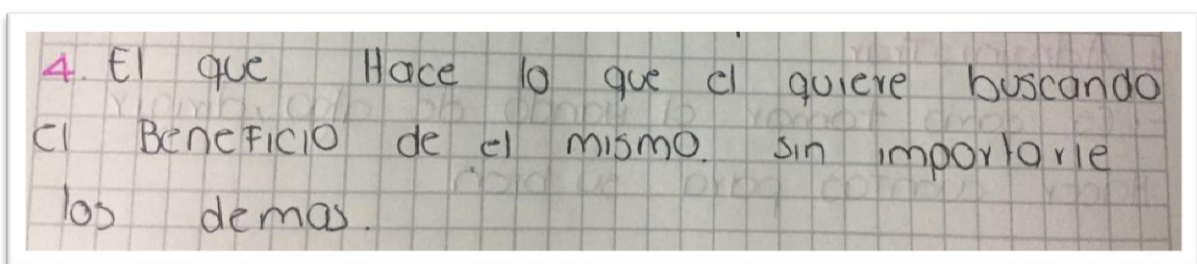 4. El que Hace lo que el quiere buscando
el BeneFicio de el mismo. sin importarle
los demas.